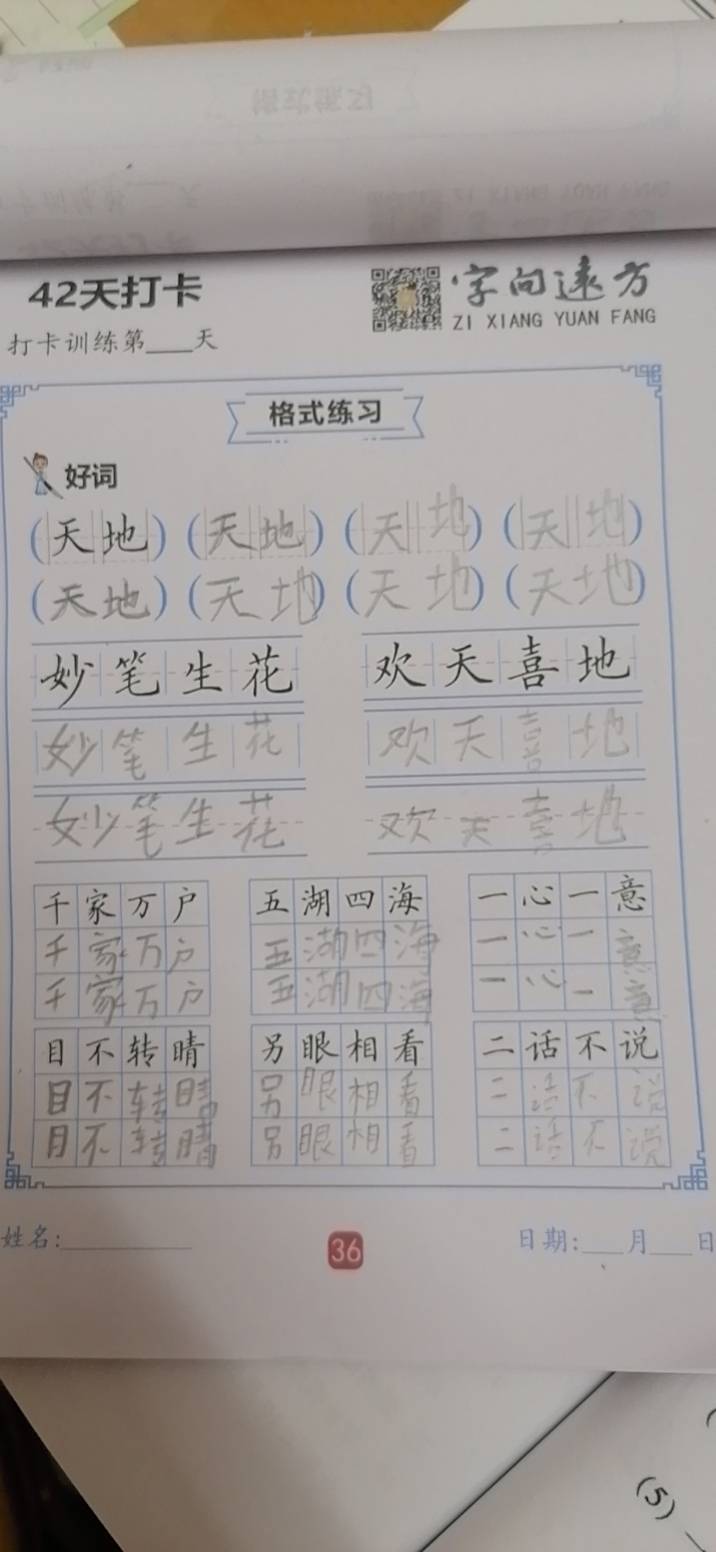 42天打卡
字向远方
ZI XIANG YUAN FANG
打卡训练第____天
格式练习
好词
(天地) (天地) (天地) (天地)
(天地) (天地) (天地) (天地)
妙笔生花 欢天喜地
妙笔生花 欢天喜地
妙笔生花 欢天喜地
千家万户 五湖四海 一心一意
千家万户 五湖四海 一心一意
千家万户 五湖四海 一心一意
目不转晴 另眼相看 二话不说
目不转晴 另眼相看 二话不说
月不转晴 另眼相看 二话不说
姓名:__________ 36 日期:____月____日
(5)